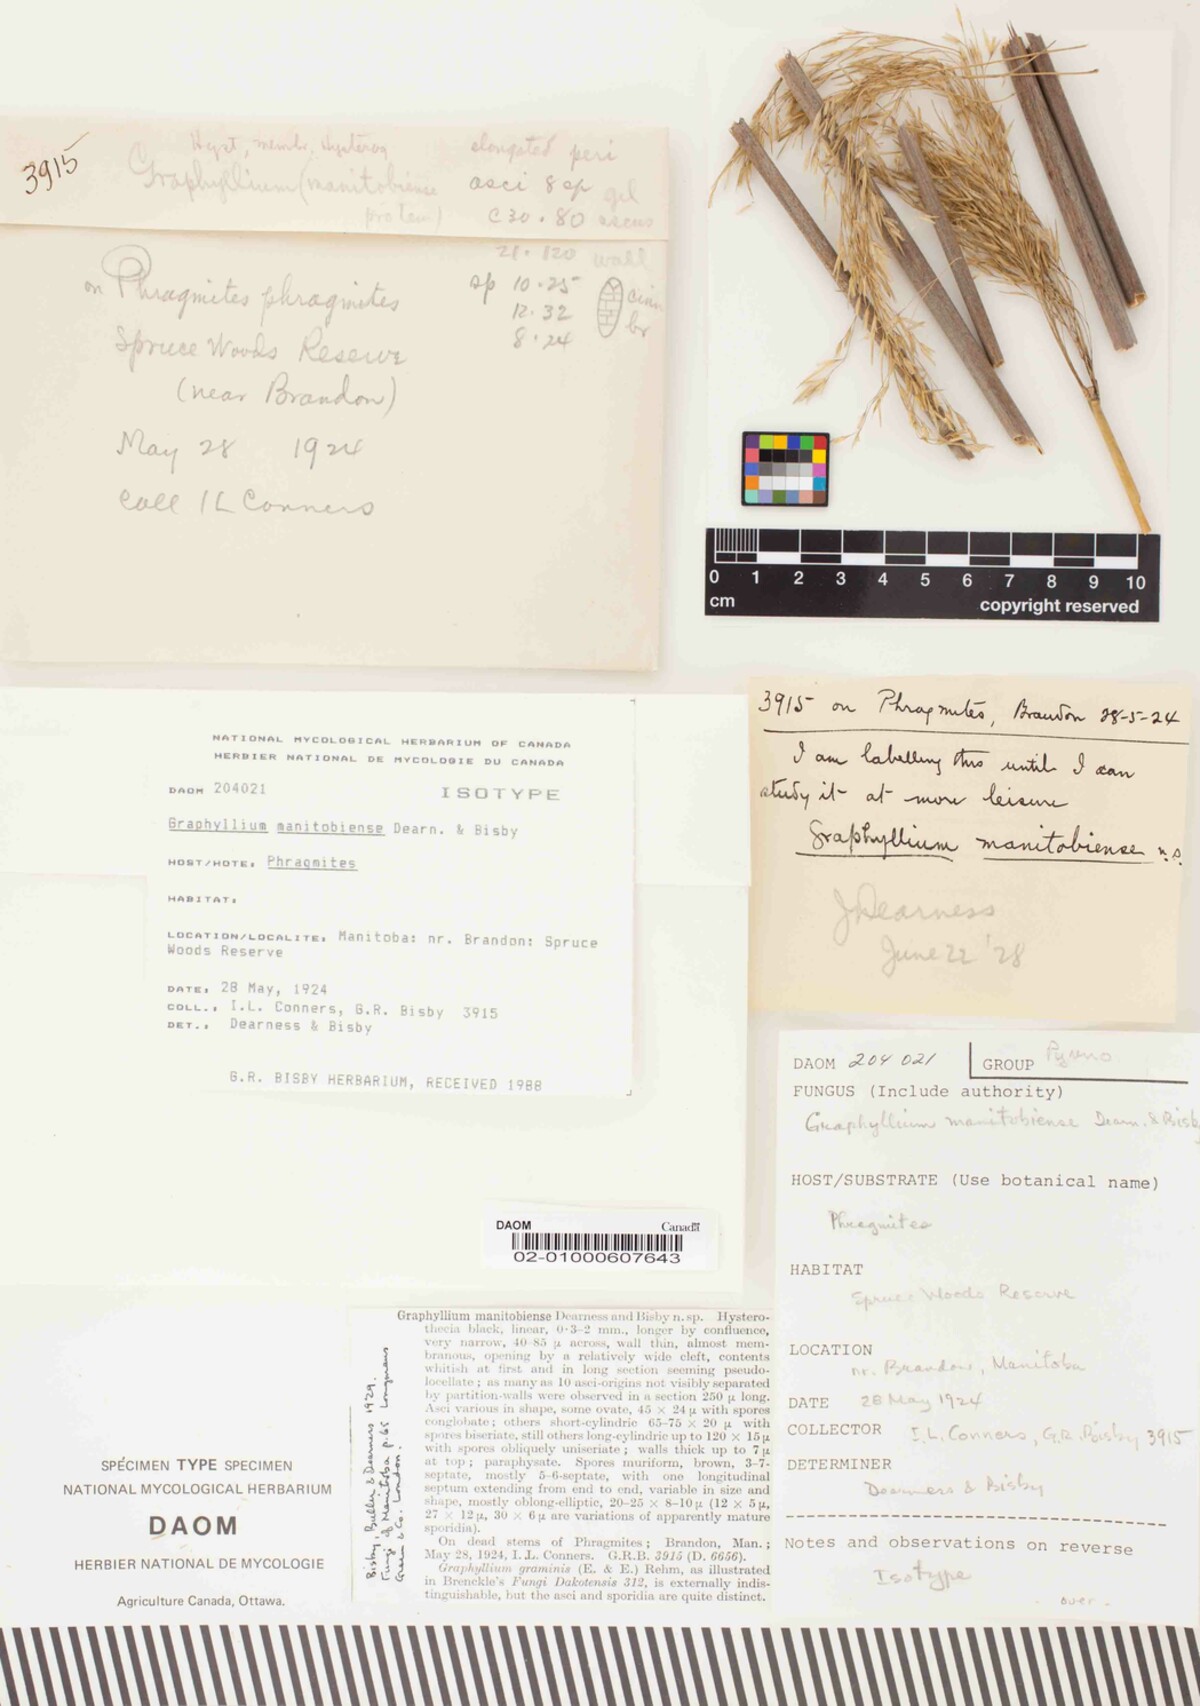 3915
Hyst, membr, Hysterog
Graphyllium (manitobiense
elongated peri
asci 8 sp gel
C30·80 ascus
21·120 wall
sp 10·25
12·32
8·24
br
on Phragmites phragmites
Spruce Woods Reserve
(near Brandon)
May 28 1924
Coll I L Conners
0 1 2 3 4 5 6 7 8 9 10
cm
copyright reserved
NATIONAL MYCOLOGICAL HERBARIUM OF CANADA
HERBIER NATIONAL DE MYCOLOGIE DU CANADA
DAOM 204021 ISOTYPE
Graphyllium manitobiense Dearn. & Bisby
HOST/HOTE: Phragmites
HABITAT:
LOCATION/LOCALITE: Manitoba: nr. Brandon: Spruce
Woods Reserve
DATE: 28 May, 1924
COLL.: I.L. Conners, G.R. Bisby 3915
DET.: Dearness & Bisby
G.R. BISBY HERBARIUM, RECEIVED 1988
3915 on Phragmites, Brandon 28-5-24
I am labelling this until I can
study it at more leisure
Graphyllium manitobiense n.s.
J Dearness
June 22 '28
DAOM 204 021 GROUP Pyreno
FUNGUS (Include authority)
Graphyllium manitobiense Dearn. & Bisby
HOST/SUBSTRATE (Use botanical name)
Phragmites
HABITAT
Spruce Woods Reserve
LOCATION
nr. Brandon, Manitoba
DATE 28 May 1924
COLLECTOR I.L. Conners, G.R. Bisby 3915
DETERMINER
Dearness & Bisby
Notes and observations on reverse
Isotype
- over -
DAOM Canada
02-01000607643
SPÉCIMEN TYPE SPECIMEN
NATIONAL MYCOLOGICAL HERBARIUM
DAOM
HERBIER NATIONAL DE MYCOLOGIE
Agriculture Canada, Ottawa.
Bisby, Buller & Dearness 1929.
Fungi of Manitoba p. 65 Longmans
Green & Co. London.
Graphyllium manitobiense Dearness and Bisby n. sp. Hystero-
thecia black, linear, 0·3–2 mm., longer by confluence,
very narrow, 40–85 µ across, wall thin, almost mem-
branous, opening by a relatively wide cleft, contents
whitish at first and in long section seeming pseudo-
locellate; as many as 10 asci-origins not visibly separated
by partition-walls were observed in a section 250 µ long.
Asci various in shape, some ovate, 45 × 24 µ with spores
conglobate; others short-cylindric 65–75 × 20 µ with
spores biseriate, still others long-cylindric up to 120 × 15 µ
with spores obliquely uniseriate; walls thick up to 7 µ
at top; paraphysate. Spores muriform, brown, 3–7-
septate, mostly 5–6-septate, with one longitudinal
septum extending from end to end, variable in size and
shape, mostly oblong-elliptic, 20–25 × 8–10 µ (12 × 5 µ,
27 × 12 µ, 30 × 6 µ are variations of apparently mature
sporidia).
On dead stems of Phragmites; Brandon, Man.;
May 28, 1924, I. L. Conners. G.R.B. 3915 (D. 6656).
Graphyllium graminis (E. & E.) Rehm, as illustrated
in Brenckle's Fungi Dakotensis 312, is externally indis-
tinguishable, but the asci and sporidia are quite distinct.